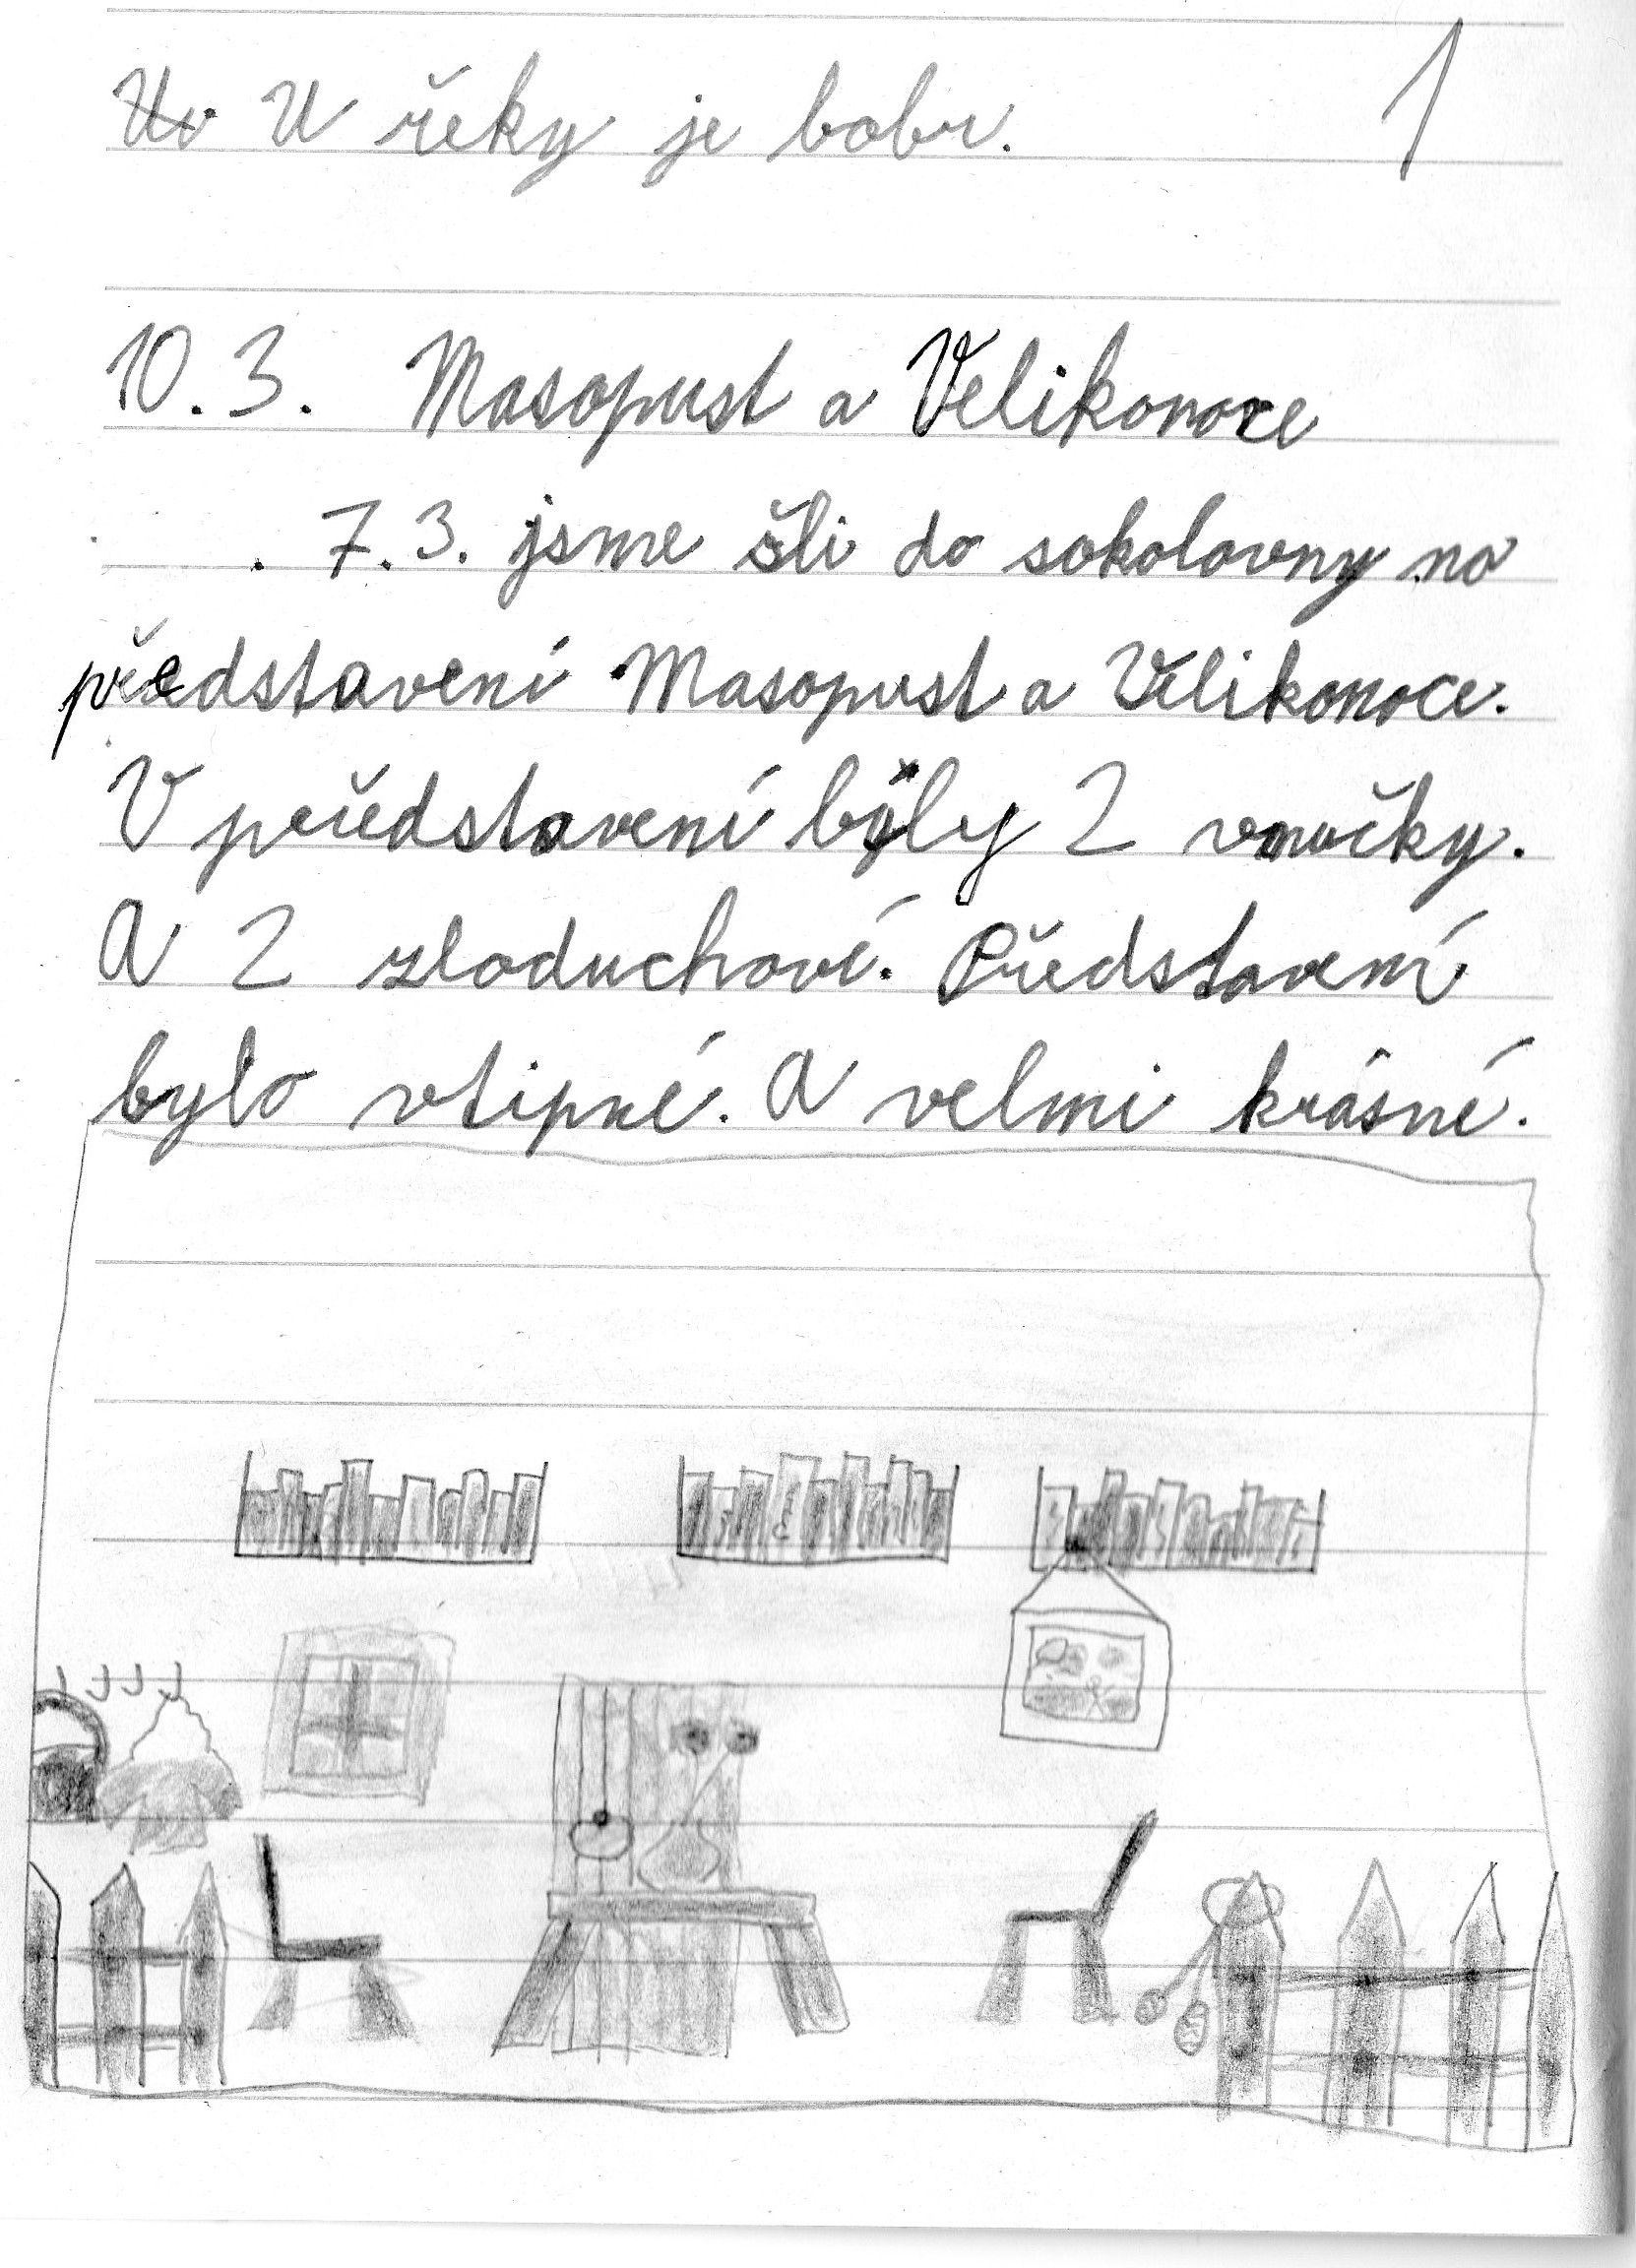 U řeky je bobr. 1
10.3. Masopust a Velikonoce
7.3. jsme šli do sokolovny na
představení Masopust a Velikonoce.
V představení byly 2 vnučky.
A 2 zloduchové. Představení
bylo vtipné. A velmi krásné.